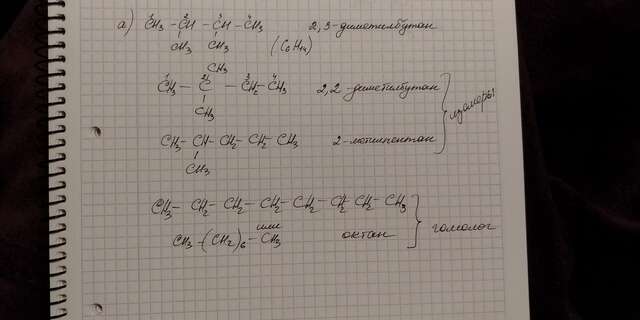 а) ¹CH₃ - ²CH - ³CH - ⁴CH₃ 2,3-диметилбутан
CH₃ CH₃ (C₆H₁₄)
CH₃
¹CH₃ - ²C - ³CH₂ - ⁴CH₃ 2,2-диметилбутан
CH₃
изомеры
CH₃ - CH - CH₂ - CH₂ - CH₃ 2-метилпентан
CH₃
CH₃ - CH₂ - CH₂ - CH₂ - CH₂ - CH₂ - CH₂ - CH₃
или
CH₃ - (CH₂)₆ - CH₃ октан гомолог